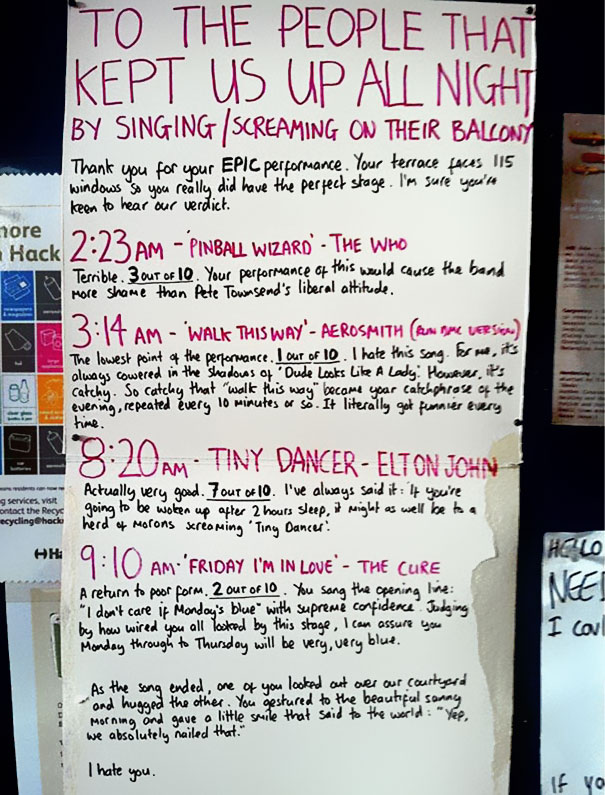 TO THE PEOPLE THAT
KEPT US UP ALL NIGHT
BY SINGING/SCREAMING ON THEIR BALCONY
Thank you for your EPIC performance. Your terrace faces 115
windows so you really did have the perfect stage. I'm sure you're
keen to hear our verdict.
2:23 AM - 'PINBALL WIZARD' - THE WHO
Terrible. 3 OUT OF 10. Your performance of this would cause the band
more shame than Pete Townsend's liberal attitude.
3:14 AM - 'WALK THIS WAY' - AEROSMITH (RUN DMC VERSION)
The lowest point of the performance. 1 out of 10. I hate this song. For me, it's
always cowered in the shadows of 'Dude Looks Like A Lady'. However, it's
catchy. So catchy that "walk this way" became your catchphrase of the
evening, repeated every 10 minutes or so. It literally got funnier every
time.
8:20 AM - TINY DANCER - ELTON JOHN
Actually very good. 7 out of 10. I've always said it: If you're
going to be woken up after 2 hours sleep, it might as well be to a
herd of morons screaming 'Tiny Dancer'.
9:10 AM - 'FRIDAY I'M IN LOVE' - THE CURE
A return to poor form. 2 OUT OF 10. You sang the opening line:
"I don't care if Monday's blue" with supreme confidence. Judging
by how wired you all looked by this stage, I can assure you
Monday through to Thursday will be very, very blue.
As the song ended, one of you looked out over our courtyard
and hugged the other. You gestured to the beautiful sunny
morning and gave a little smile that said to the world: "Yep,
we absolutely nailed that."
I hate you.
more
Hack
g services, visit
ontact the Recyc
ecycling@hack
HELLO
NEE
I coul
If yo